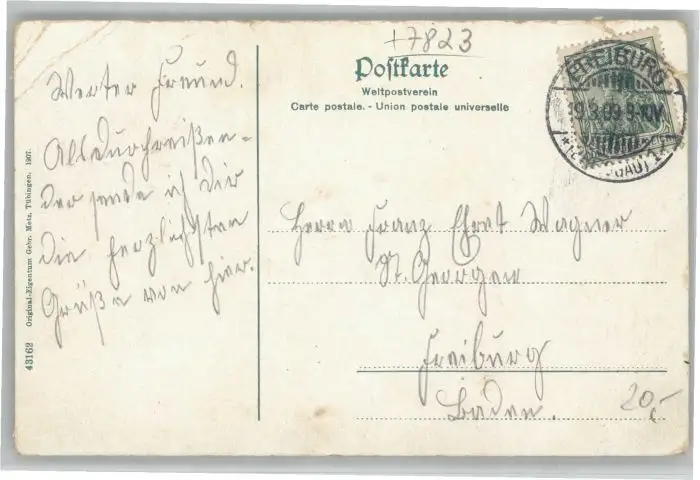 +7823
Postkarte
Weltpostverein
Carte postale. - Union postale universelle
FREIBURG
19.3.09.9-10V.
Werter Freund.
Alldurchreißen-
der sende ich dir
die herzlichsten
Grüße von hier.
Herrn Franz Wagner
St. Georgen
Freiburg
Baden.
20,-
43162 Original-Eigentum Gebr. Metz, Tübingen, 1907.